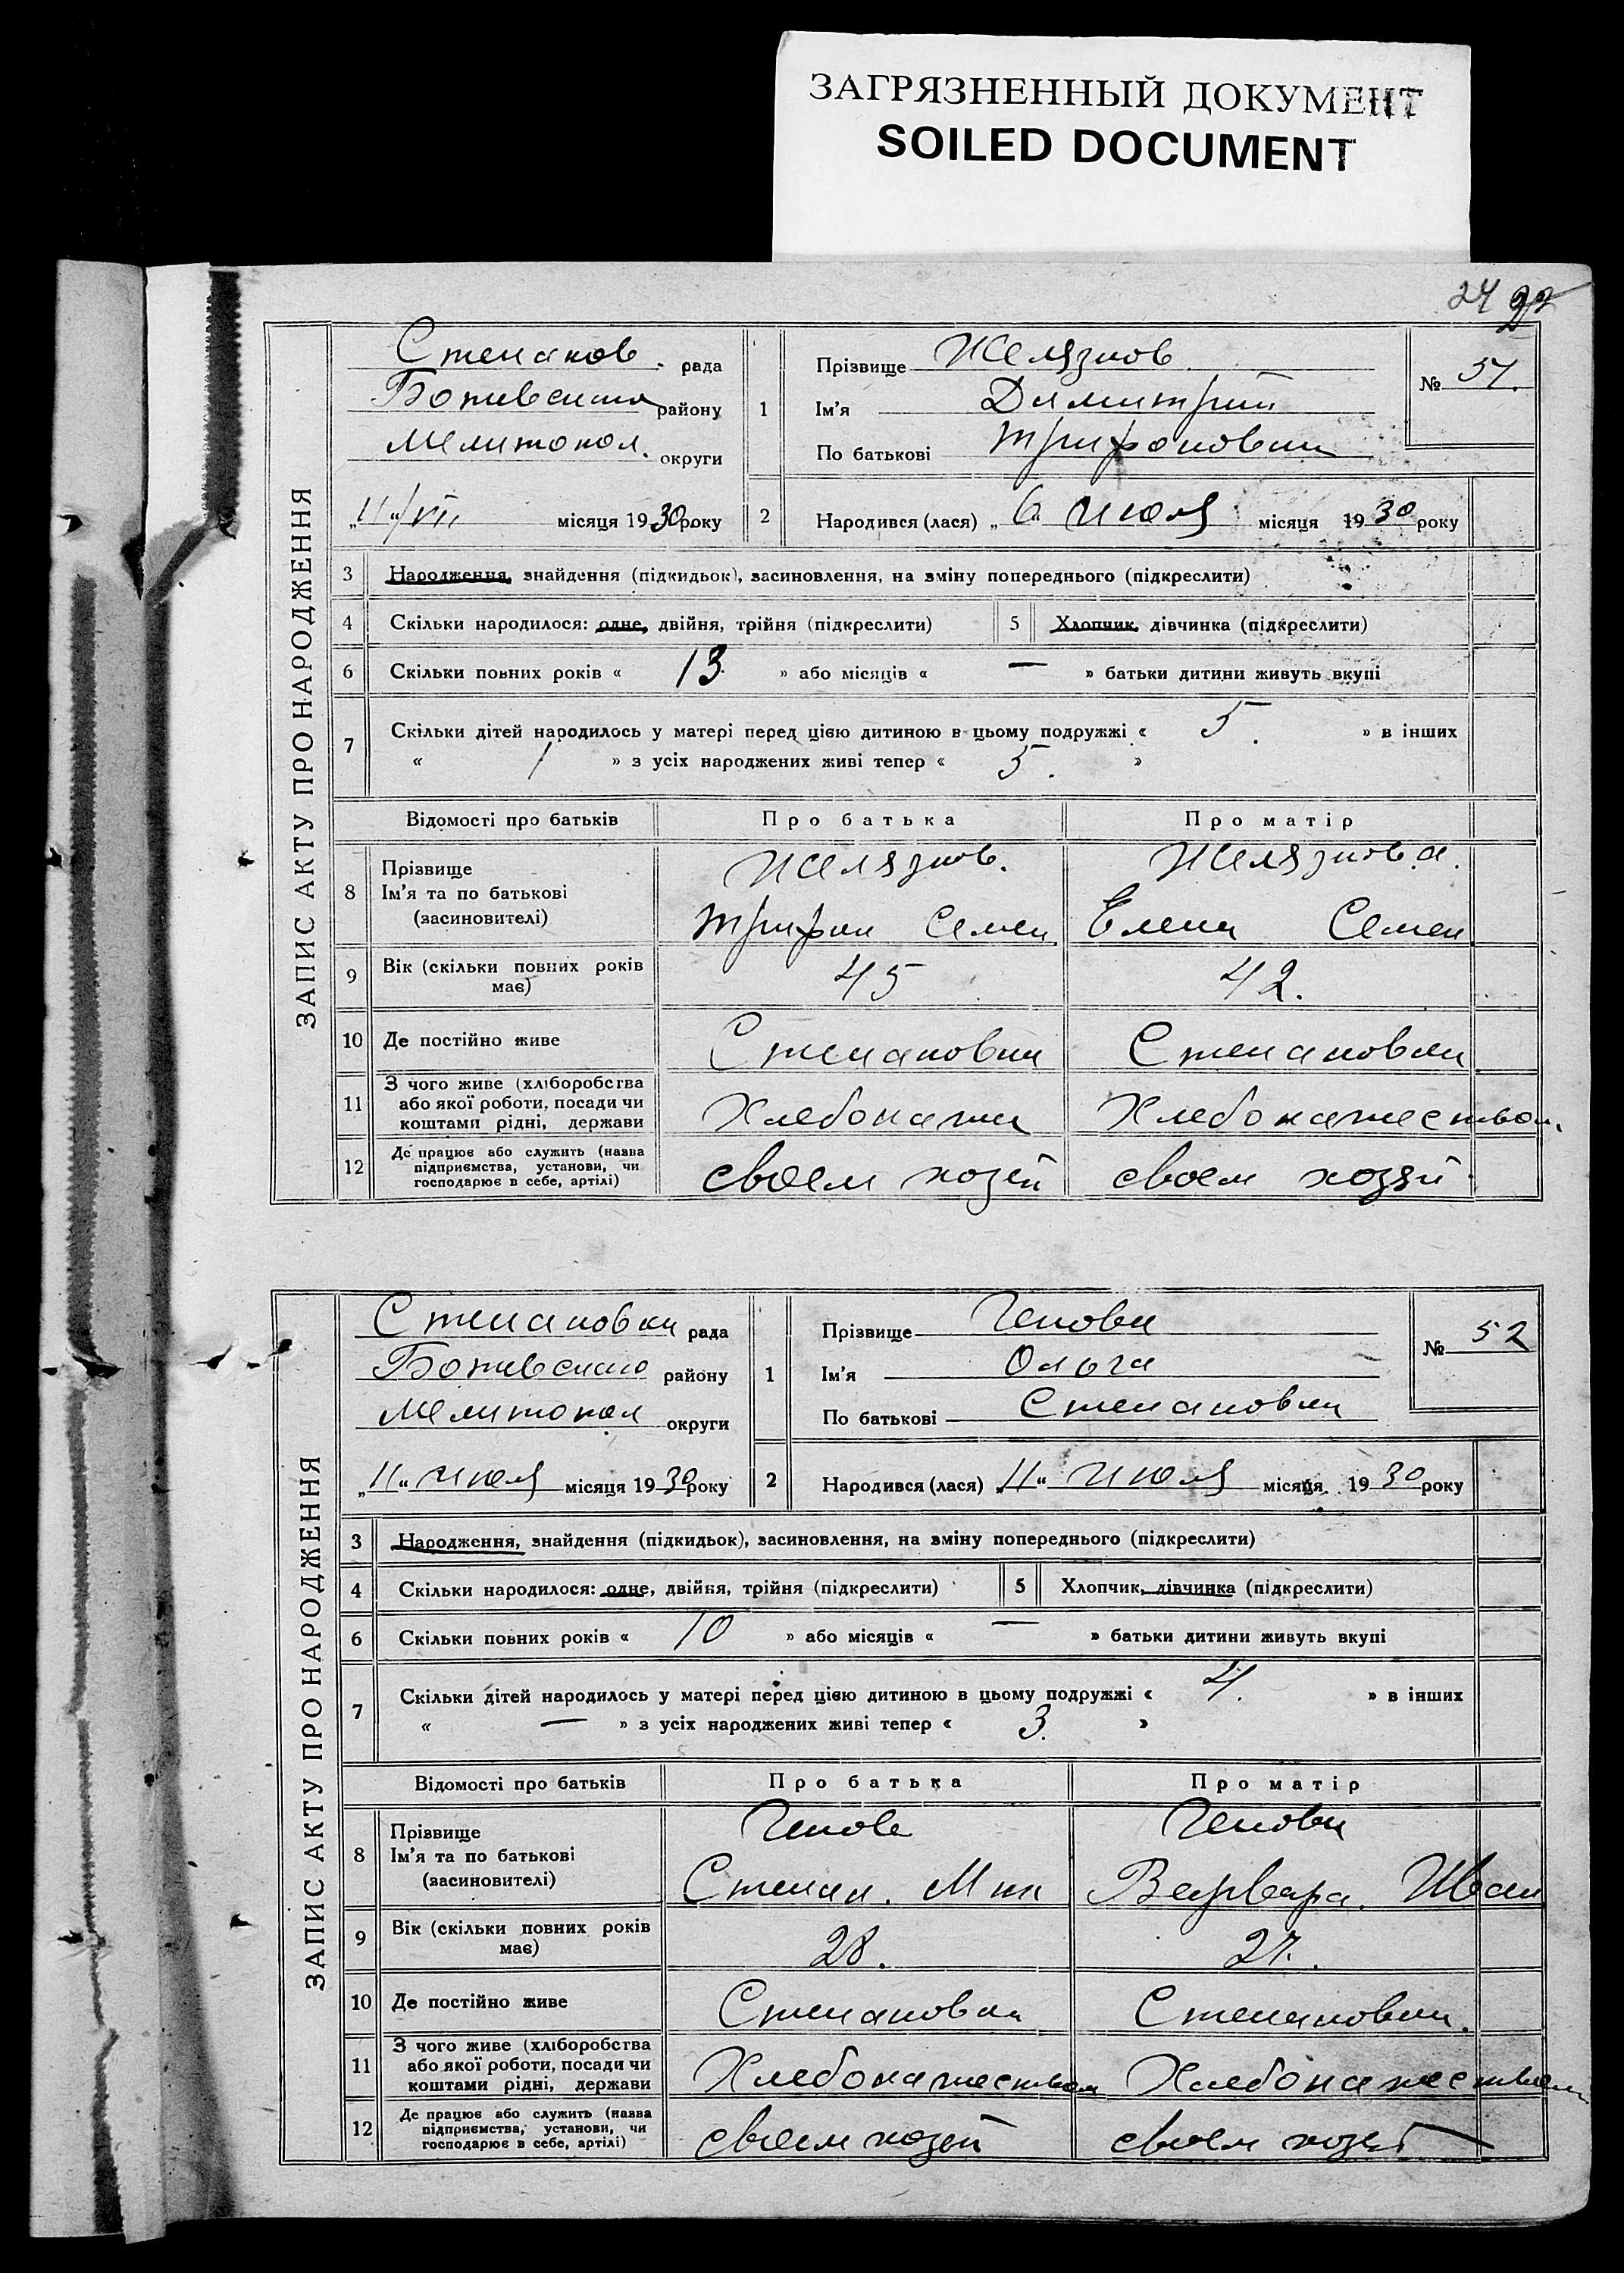 ЗАГРЯЗНЕННЫЙ ДОКУМЕНТ
SOILED DOCUMENT
24
ЗАПИС АКТУ ПРО НАРОДЖЕННЯ
Степанов. рада
Ботиевского району
Мелитопол. округи
„11“/VII місяця 1930 року
1
Прізвище Желязков
Ім’я Димитрий
По батькові Трифонович
№ 51.
2
Народився (лася) „6“ июля місяця 1930 року
3 Народження, знайдення (підкидьок), засиновлення, на зміну попереднього (підкреслити)
4 Скільки народилося: одне, двійня, трійня (підкреслити)
5 Хлопчик, дівчинка (підкреслити)
6 Скільки повних років « 13 » або місяців « — » батьки дитини живуть вкупі
7 Скільки дітей народилось у матері перед цією дитиною в цьому подружжі « 5. » в інших
« 1 » з усіх народжених живі тепер « 5. »
Відомості про батьків Про батька Про матір
8 Прізвище Желязков. Желязкова.
Ім’я та по батькові
(засиновителі) Трифон Семен Елена Семен
9 Вік (скільки повних років
має) 45 42.
10 Де постійно живе Степановка Степановка
11 З чого живе (хліборобства
або якої роботи, посади чи
коштами рідні, держави Хлебопаш Хлебопашеством
12 Де працює або служить (назва
підприємства, установи, чи
господарює в себе, артілі) своем хозяй своем хозяй
ЗАПИС АКТУ ПРО НАРОДЖЕННЯ
Степановка рада
Ботиевского району
Мелитопол округи
„11“ июля місяця 1930 року
1
Прізвище Генова
Ім’я Ольга
По батькові Степановна
№ 52
2
Народився (лася) „11“ июля місяця 1930 року
3 Народження, знайдення (підкидьок), засиновлення, на зміну попереднього (підкреслити)
4 Скільки народилося: одне, двійня, трійня (підкреслити)
5 Хлопчик, дівчинка (підкреслити)
6 Скільки повних років « 10 » або місяців « — » батьки дитини живуть вкупі
7 Скільки дітей народилось у матері перед цією дитиною в цьому подружжі « 4. » в інших
« — » з усіх народжених живі тепер « 3. »
Відомості про батьків Про батька Про матір
8 Прізвище Генов Генова
Ім’я та по батькові
(засиновителі) Степан. Варвара. Иван
9 Вік (скільки повних років
має) 28. 27.
10 Де постійно живе Степановка Степановка.
11 З чого живе (хліборобства
або якої роботи, посади чи
коштами рідні, держави Хлебопашеством Хлебопашеством
12 Де працює або служить (назва
підприємства, установи, чи
господарює в себе, артілі) своем хозяй своем хозяй